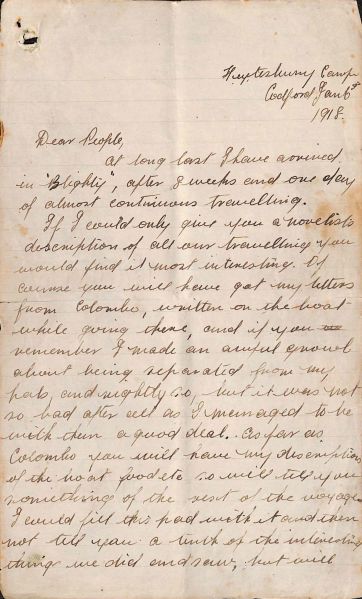 Heytesbury Camp
Codford Jan 6th
1918.
Dear People,
at long last I have arrived
in "Blighty", after 8 weeks and one day
of almost continuous travelling.
If I could only give you a novelists
description of all our travelling you
would find it most interesting. Of
course you will have got my letters
from Colombo, written on the boat
while going there, and if you
remember I made an awful growl
about being separated from my
pals, and rightly so, but it was not
so bad after all as I managed to be
with them a good deal. As far as
Colombo you will have my description
of the boat food etc so will tell you
something of the rest of the voyage
I could fill this pad with it and then
not tell you a tenth of the interesting
things we did and saw, but will